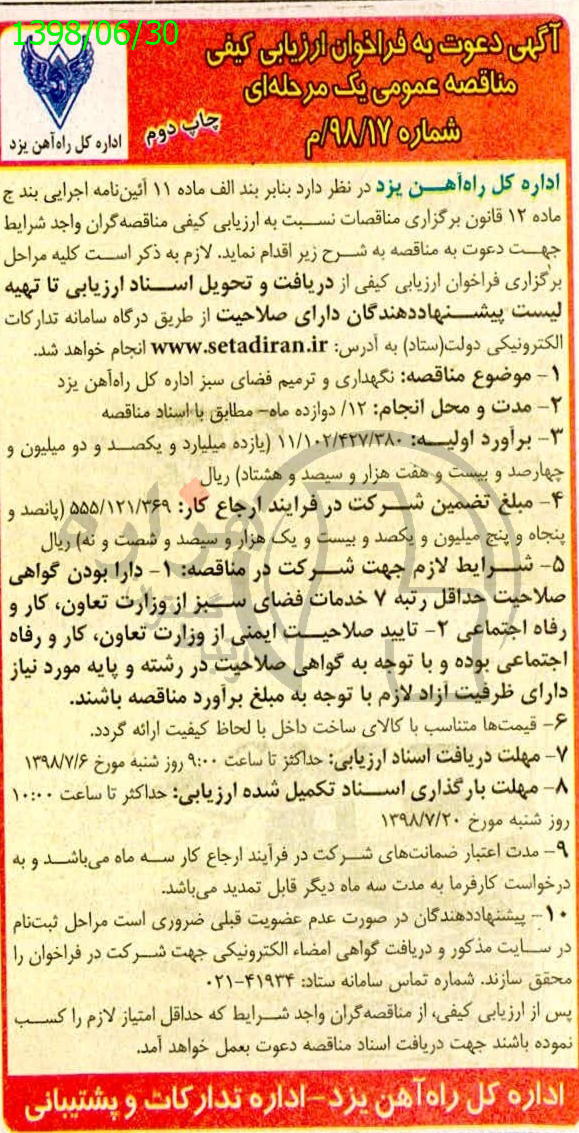 1398/06/30
آگهی دعوت به فراخوان ارزیابی کیفی
مناقصه عمومی یک مرحله‌ای
شماره ۹۸/۱۷/م
چاپ دوم
اداره کل راه‌آهن یزد
اداره کل راه‌آهن یزد در نظر دارد بنابر بند الف ماده ۱۱ آئین‌نامه اجرایی بند ج
ماده ۱۲ قانون برگزاری مناقصات نسبت به ارزیابی کیفی مناقصه‌گران واجد شرایط
جهت دعوت به مناقصه به شرح زیر اقدام نماید. لازم به ذکر است کلیه مراحل
برگزاری فراخوان ارزیابی کیفی از دریافت و تحویل اسناد ارزیابی تا تهیه
لیست پیشنهاددهندگان دارای صلاحیت از طریق درگاه سامانه تدارکات
الکترونیکی دولت(ستاد) به آدرس: www.setadiran.ir انجام خواهد شد.
۱- موضوع مناقصه: نگهداری و ترمیم فضای سبز اداره کل راه‌آهن یزد
۲- مدت و محل انجام: ۱۲/ دوازده ماه- مطابق با اسناد مناقصه
۳- برآورد اولیه: ۱۱/۱۰۲/۴۲۷/۳۸۰ (یازده میلیارد و یکصد و دو میلیون و
چهارصد و بیست و هفت هزار و سیصد و هشتاد) ریال
۴- مبلغ تضمین شرکت در فرایند ارجاع کار: ۵۵۵/۱۲۱/۳۶۹ (پانصد و
پنجاه و پنج میلیون و یکصد و بیست و یک هزار و سیصد و شصت و نه) ریال
۵- شرایط لازم جهت شرکت در مناقصه: ۱- دارا بودن گواهی
صلاحیت حداقل رتبه ۷ خدمات فضای سبز از وزارت تعاون، کار و
رفاه اجتماعی ۲- تایید صلاحیت ایمنی از وزارت تعاون، کار و رفاه
اجتماعی بوده و با توجه به گواهی صلاحیت در رشته و پایه مورد نیاز
دارای ظرفیت آزاد لازم با توجه به مبلغ برآورد مناقصه باشند.
۶- قیمت‌ها متناسب با کالای ساخت داخل با لحاظ کیفیت ارائه گردد.
۷- مهلت دریافت اسناد ارزیابی: حداکثر تا ساعت ۹:۰۰ روز شنبه مورخ ۱۳۹۸/۷/۶
۸- مهلت بارگذاری اسناد تکمیل شده ارزیابی: حداکثر تا ساعت ۱۰:۰۰
روز شنبه مورخ ۱۳۹۸/۷/۲۰
۹- مدت اعتبار ضمانت‌های شرکت در فرآیند ارجاع کار سه ماه می‌باشد و به
درخواست کارفرما به مدت سه ماه دیگر قابل تمدید می‌باشد.
۱۰- پیشنهاددهندگان در صورت عدم عضویت قبلی ضروری است مراحل ثبت‌نام
در سایت مذکور و دریافت گواهی امضاء الکترونیکی جهت شرکت در فراخوان را
محقق سازند. شماره تماس سامانه ستاد: ۴۱۹۳۴-۰۲۱
پس از ارزیابی کیفی، از مناقصه‌گران واجد شرایط که حداقل امتیاز لازم را کسب
نموده باشند جهت دریافت اسناد مناقصه دعوت بعمل خواهد آمد.
اداره کل راه‌آهن یزد-اداره تدارکات و پشتیبانی